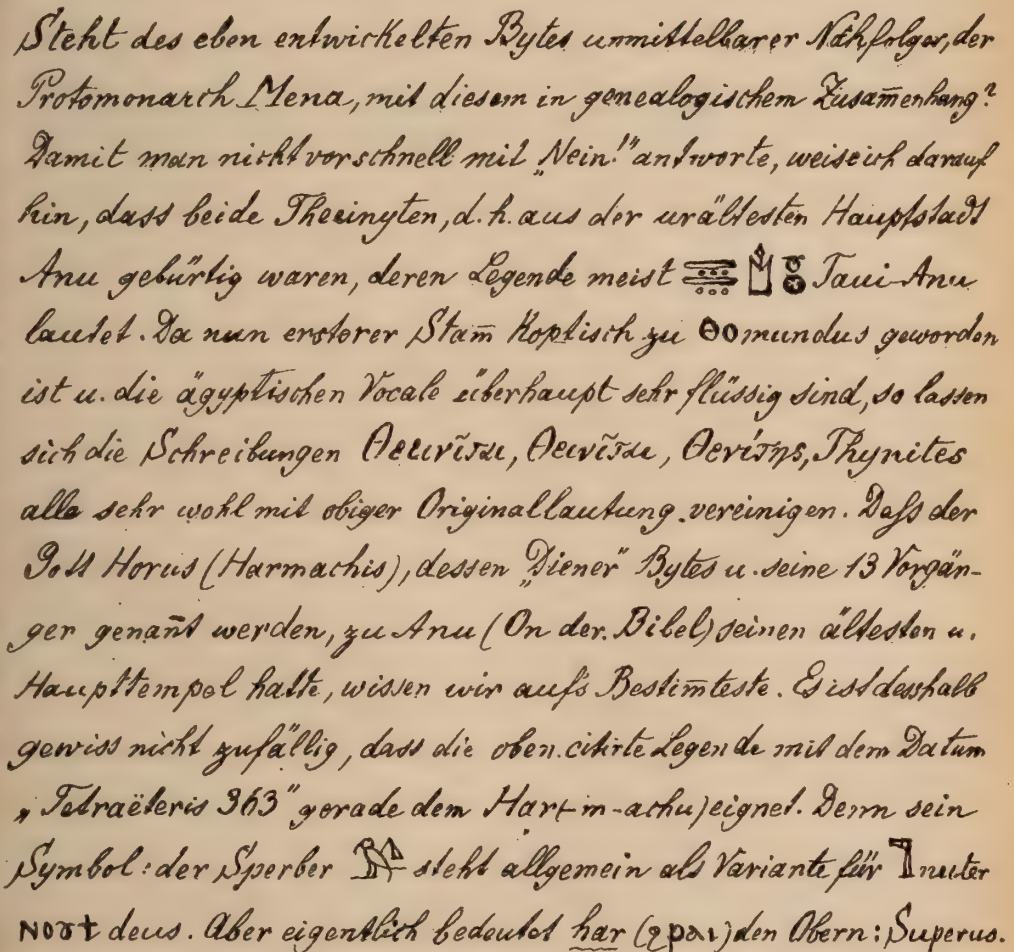 Steht des eben entwickelten Bytes unmittelbarer Nachfolger, der
Protomonarch Mena, mit diesem in genealogischem Zusam̅enhang?
Damit man nicht vorschnell mit „Nein!" antworte, weise ich darauf
hin, dass beide Theeinyten, d.h. aus der urältesten Hauptstadt
Anu gebürtig waren, deren Legende meist Taui-Anu
lautet. Da nun ersterer Stam̅ Koptisch zu ⲑⲟ mundus geworden
ist u. die ägyptischen Vocale überhaupt sehr flüssig sind, so lassen
sich die Schreibungen Thynites
alle sehr wohl mit obiger Originallautung vereinigen. Dass der
Gott Horus (Harmachis), dessen „Diener" Bytes u. seine 13 Vorgän-
ger genan̅t werden, zu Anu (On der Bibel) seinen ältesten u.
Haupttempel hatte, wissen wir aufs Bestim̅teste. Es ist desshalb
gewiss nicht zufällig, dass die oben citirte Legende mit dem Datum
„Tetraëteris 363" gerade dem Har(-m-achu) eignet. Denn sein
Symbol: der Sperber steht allgemein als Variante für nuter
deus. Aber eigentlich bedeutet har (ϩⲣⲁⲓ) den Obern: Superus.